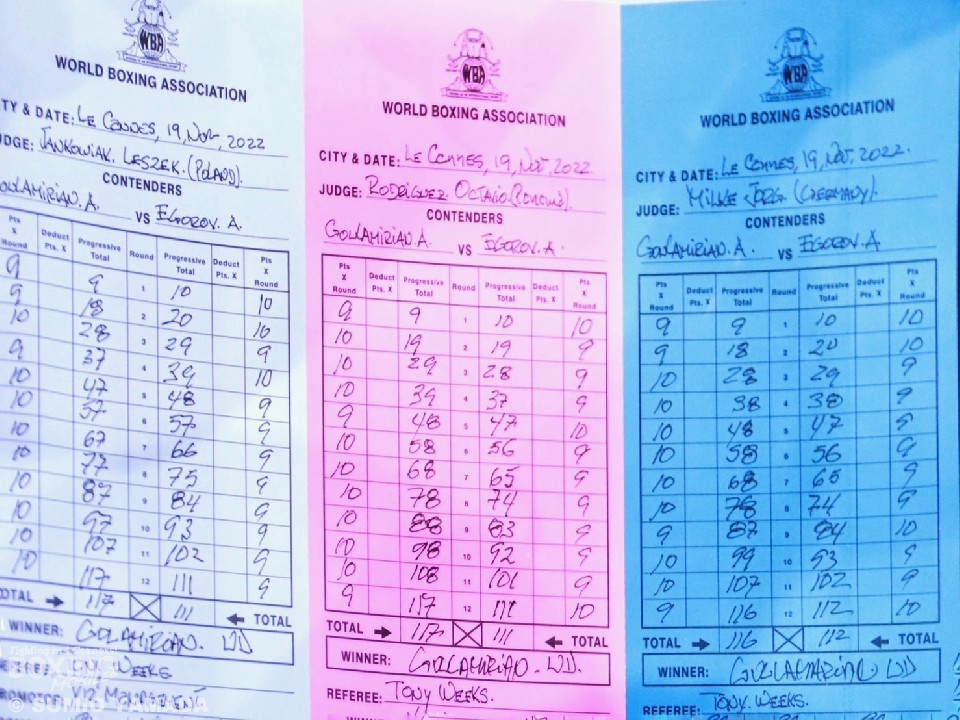 WBA
WORLD BOXING ASSOCIATION
TY & DATE: LE CANNES, 19, NOV, 2022
UDGE: JANKOWIAK LESZEK (POLAND).
CONTENDERS
GOULAMIRIAN. A. VS EGOROV. A.
Pts X Round Deduct Pts. X Progressive Total Round Progressive Total Deduct Pts. X Pts X Round
9 9 1 10 10
9 18 2 20 10
10 28 3 29 9
9 37 4 39 10
10 47 5 48 9
10 57 6 57 9
10 67 7 66 9
10 77 8 75 9
10 87 9 84 9
10 97 10 93 9
10 107 11 102 9
10 117 12 111 9
TOTAL 117 111 TOTAL
WINNER: GOLAMIRIAN. UD
REFEREE: TONY WEEKS
PROMOTOR: VIP MANAGEMENT
© SUMIO YAMADA
WBA
WORLD BOXING ASSOCIATION
CITY & DATE: LE CANNES, 19, NOV 2022
JUDGE: RODRIGUEZ OCTAVIO
CONTENDERS
GOULAMIRIAN A. VS EGOROV. A
Pts X Round Deduct Pts. X Progressive Total Round Progressive Total Deduct Pts. X Pts X Round
9 9 1 10 10
10 19 2 19 9
10 29 3 28 9
10 39 4 37 9
9 48 5 47 10
10 58 6 56 9
10 68 7 65 9
10 78 8 74 9
10 88 9 83 9
10 98 10 92 9
10 108 11 101 9
9 117 12 111 10
TOTAL 117 111 TOTAL
WINNER: GOULAMIRIAN - UD.
REFEREE: TONY WEEKS.
WBA
WORLD BOXING ASSOCIATION
CITY & DATE: LE CANNES, 19, NOV, 2022.
JUDGE: MILKE JORG (GERMANY).
CONTENDERS
GOULAMIRIAN A VS EGOROV. A
Pts X Round Deduct Pts. X Progressive Total Round Progressive Total Deduct Pts. X Pts X Round
9 9 1 10 10
9 18 2 20 10
10 28 3 29 9
10 38 4 38 9
10 48 5 47 9
10 58 6 56 9
10 68 7 65 9
10 78 8 74 9
9 87 9 84 10
10 99 10 93 9
10 107 11 102 9
9 116 12 112 10
TOTAL 116 112 TOTAL
WINNER: GOULAMIRIAN UD
REFEREE: TONY WEEKS